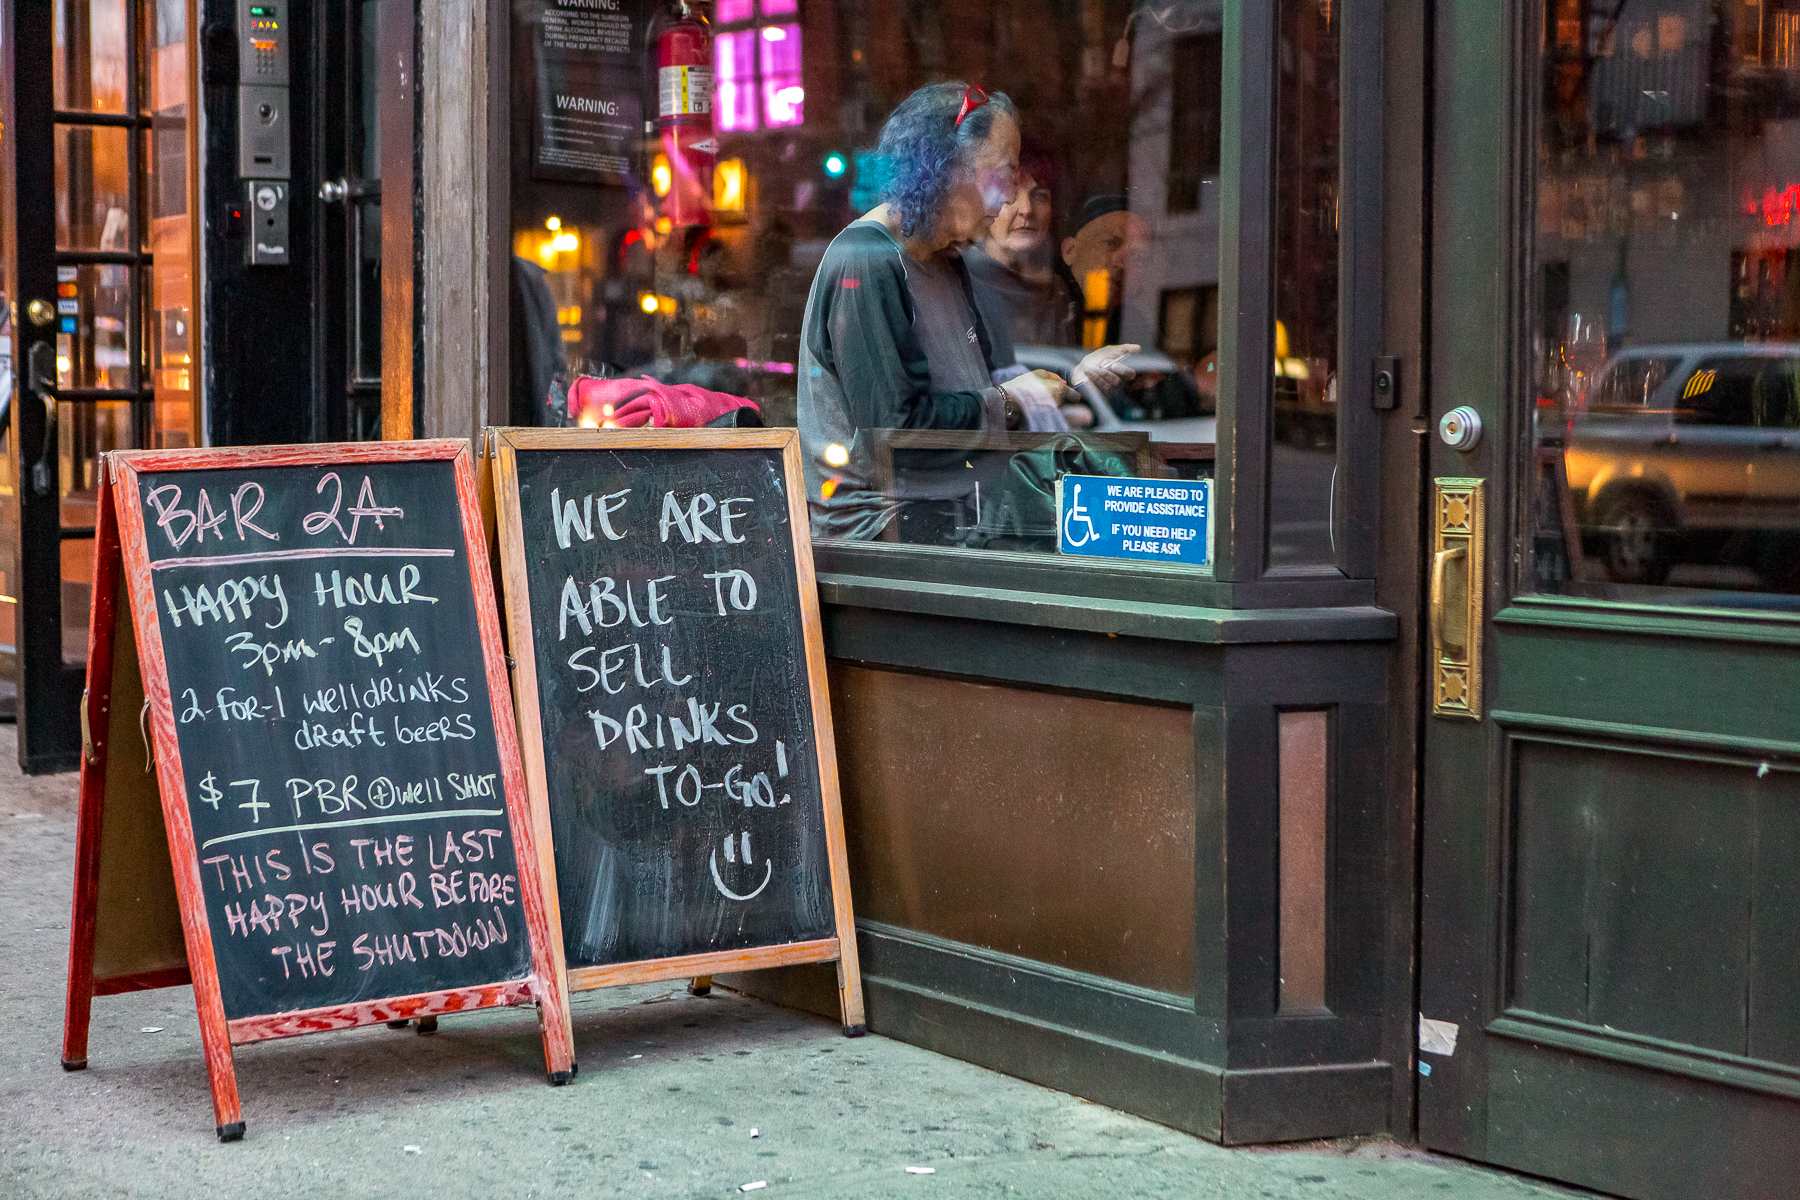 WARNING:
ACCORDING TO THE SURGEON
GENERAL, WOMEN SHOULD NOT
DRINK ALCOHOLIC BEVERAGES
DURING PREGNANCY BECAUSE
OF THE RISK OF BIRTH DEFECTS
WARNING:
BAR 2A
HAPPY HOUR
3pm - 8pm
2-FOR-1 well dRINKS
dRaft beeRS
$7 PBR + well SHOT
THIS IS THE LAST
HAPPY HOUR BEFORE
THE SHUTDOWN
WE ARE
ABLE TO
SELL
DRINKS
TO-GO!
WE ARE PLEASED TO
PROVIDE ASSISTANCE
IF YOU NEED HELP
PLEASE ASK